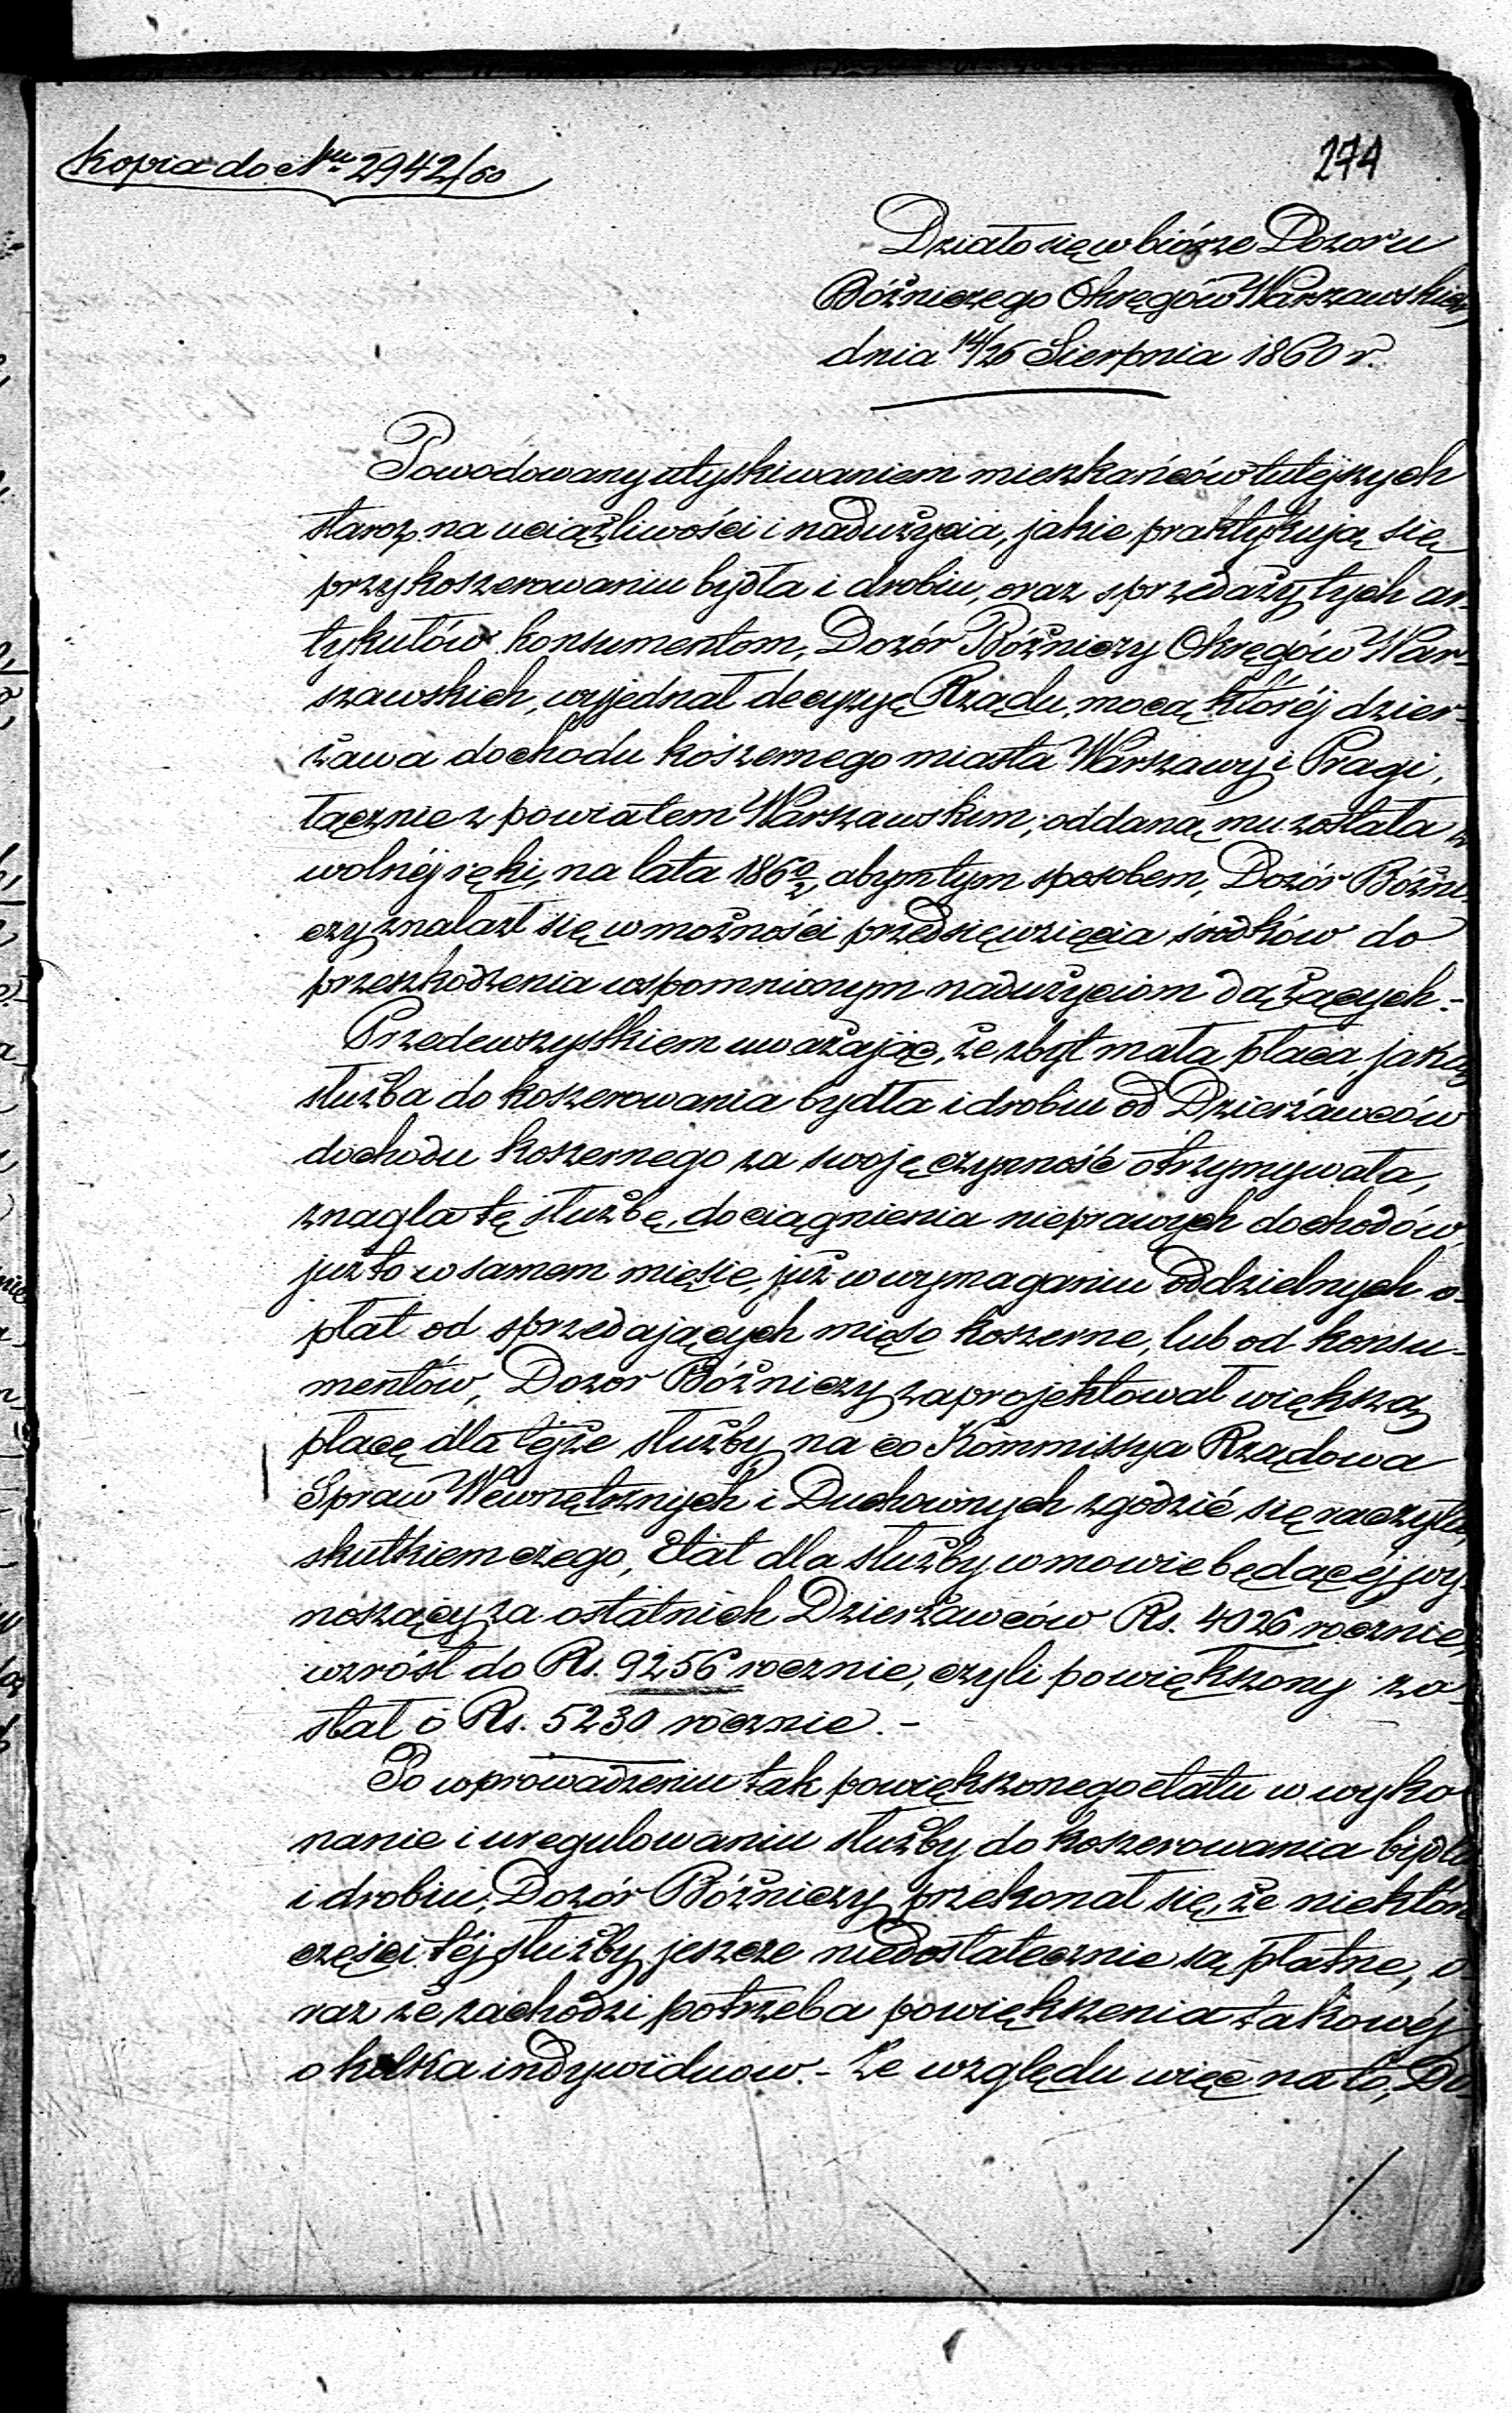 Kopia do Nru 2942/60
274
Działo się w biórze Dozoru
Bóżniczego Okręgów Warszawskich
dnia 14/26 Sierpnia 1860 r.
Powodowany utyskiwaniem mieszkańców tutejszych
staroz. na uciążliwości i nadużycia, jakie praktykują się
przy koszerowaniu bydła i drobiu, oraz sprzedaży tych ar-
tykułów konsumentom, Dozór Bóżniczy Okręgów War-
szawskich, wyjednał decyzyę Rządu, mocą któréj dzier-
żawa dochodu koszernego miasta Warszawy i Pragi,
łącznie z powiatem Warszawskim, oddaną mu została z
wolnéj ręki, na lata 1860/2, aby tym sposobem, Dozór Bóżni-
czy znalazł się w możności przedsięwzięcia środków do
przeszkodzenia wspomnionym nadużyciom dążących.-
Przedewszystkiem uważając, że zbyt mała płaca, jaką
służba do koszerowania bydła i drobiu od Dzierżawców
dochodu koszernego za swoję czynność otrzymywała,
znagla tę służbę, do ciągnienia nieprawych dochodów,
już to w samem mięsie, już w wymaganiu oddzielnych o-
płat od sprzedających mięso koszerne, lub od konsu-
mentów, Dozór Bóżniczy zaprojektował większą
płacę dla tejże służby, na co Kommissya Rządowa
Spraw Wewnętrznych i Duchownych zgodzić się raczyła,
skutkiem czego, Etat dla służby w mowie będącéj, wy-
noszący za ostatnich Dzierżawców Rs. 4026 rocznie,
wzrósł do Rs. 9256 rocznie, czyli powiększony zo-
stał o Rs. 5230 rocznie.-
Po wprowadzeniu tak powiększonego etatu w wyko-
nanie i uregulowaniu służby do koszerowania bydła
i drobiu, Dozór Bóżniczy przekonał się, że niektóre
części téj służby jeszcze niedostatecznie są płatne, o-
raz że zachodzi potrzeba powiększenia takowéj
o kilka indywiduów.- Ze względu więc na to, Do-